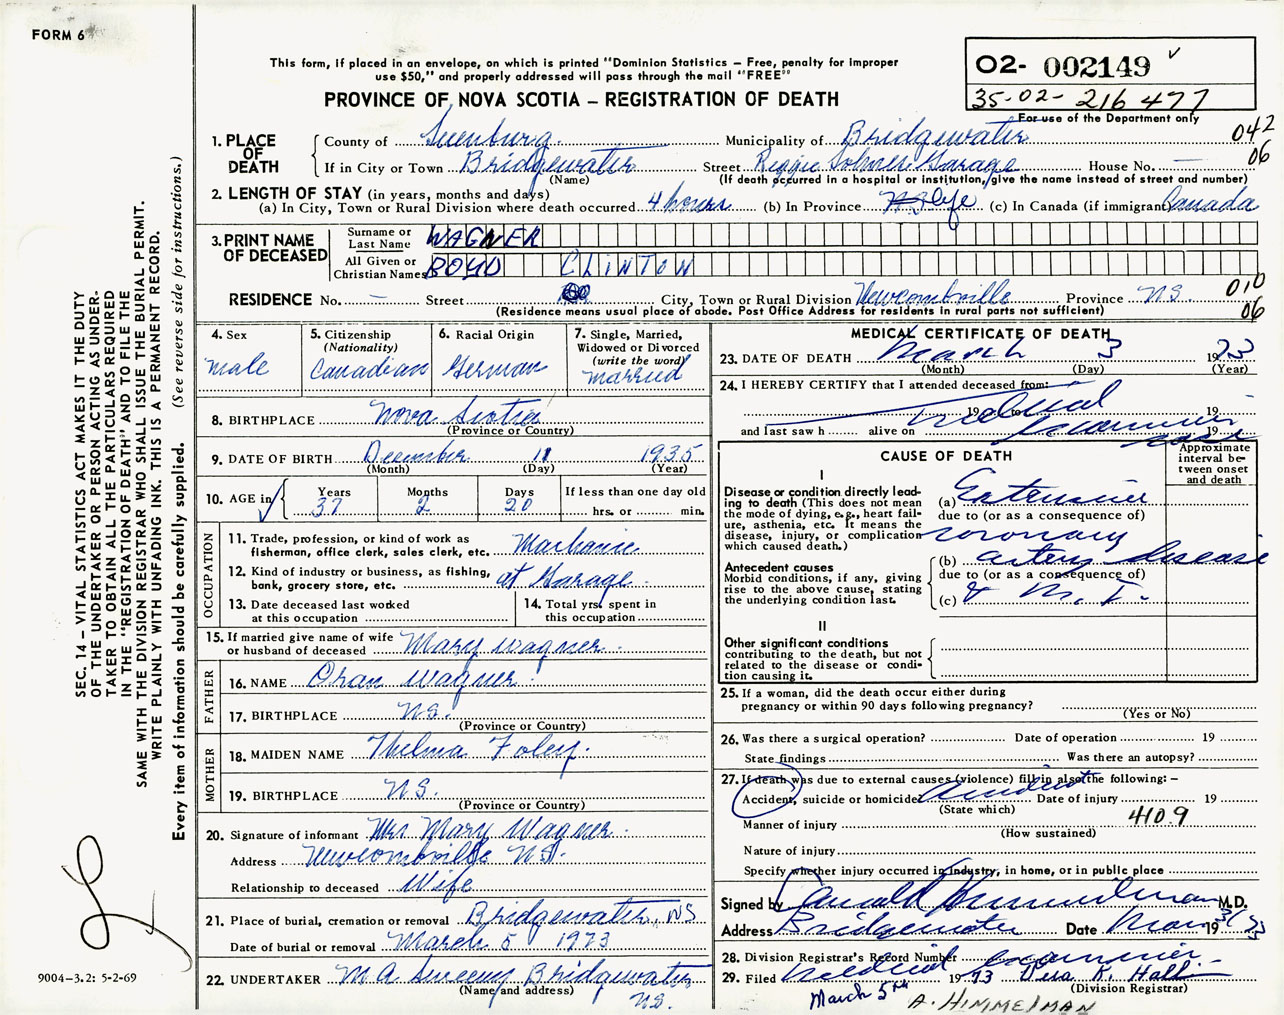 FORM 6
This form, if placed in an envelope, on which is printed "Dominion Statistics – Free, penalty for improper
use $50," and properly addressed will pass through the mail "FREE"
PROVINCE OF NOVA SCOTIA – REGISTRATION OF DEATH
02- 002149
35-02- 216 477
For use of the Department only
1. PLACE OF DEATH
County of Lunenburg Municipality of Bridgewater 042
If in City or Town Bridgewater Street Reggie Garage House No. — 06
(Name) (If death occurred in a hospital or institution, give the name instead of street and number)
2. LENGTH OF STAY (in years, months and days)
(a) In City, Town or Rural Division where death occurred 4 hours (b) In Province life (c) In Canada (if immigrant) Canada
3. PRINT NAME OF DECEASED
Surname or Last Name WAGNER
All Given or Christian Names BOYD CLINTON
RESIDENCE No. — Street City, Town or Rural Division Newcombville Province N.S. 010
(Residence means usual place of abode. Post Office Address for residents in rural parts not sufficient) 06
4. Sex
male
5. Citizenship
(Nationality)
Canadian
6. Racial Origin
German
7. Single, Married,
Widowed or Divorced
(write the word)
married
8. BIRTHPLACE Nova Scotia
(Province or Country)
9. DATE OF BIRTH December 11 1935
(Month) (Day) (Year)
10. AGE in
Years Months Days If less than one day old
37 2 20 hrs. or min.
OCCUPATION
11. Trade, profession, or kind of work as
fisherman, office clerk, sales clerk, etc. Mechanic
12. Kind of industry or business, as fishing,
bank, grocery store, etc. at Garage
13. Date deceased last worked
at this occupation
14. Total yrs. spent in
this occupation
15. If married give name of wife
or husband of deceased Mary Wagner
FATHER
16. NAME Oran Wagner
17. BIRTHPLACE N.S.
(Province or Country)
MOTHER
18. MAIDEN NAME Thelma Foley
19. BIRTHPLACE N.S.
(Province or Country)
20. Signature of informant Mrs Mary Wagner
Address Newcombville N.S.
Relationship to deceased Wife
21. Place of burial, cremation or removal Bridgewater, NS
Date of burial or removal March 5 1973
22. UNDERTAKER M A Sweeny Bridgewater
(Name and address) N.S.
MEDICAL CERTIFICATE OF DEATH
23. DATE OF DEATH March 3 1973
(Month) (Day) (Year)
24. I HEREBY CERTIFY that I attended deceased from:
19 to 19
and last saw h alive on 19
medical examiner case
CAUSE OF DEATH
Approximate
interval be-
tween onset
and death
I
Disease or condition directly lead-
ing to death (This does not mean
the mode of dying, e.g., heart fail-
ure, asthenia, etc. It means the
disease, injury, or complication
which caused death.)
(a) Extensive
due to (or as a consequence of)
coronary
Antecedent causes
Morbid conditions, if any, giving
rise to the above cause, stating
the underlying condition last.
(b) artery disease
due to (or as a consequence of)
(c) & M. I.
II
Other significant conditions
contributing to the death, but not
related to the disease or condi-
tion causing it.
25. If a woman, did the death occur either during
pregnancy or within 90 days following pregnancy?
(Yes or No)
26. Was there a surgical operation? Date of operation 19
State findings Was there an autopsy?
27. If death was due to external causes (violence) fill in also the following: –
Accident, suicide or homicide Date of injury 19
(State which)
Manner of injury 4109
(How sustained)
Nature of injury
Specify whether injury occurred in industry, in home, or in public place
Signed by Himmelman M.D.
Address Bridgewater Date Mar 3/ 1973
28. Division Registrar's Record Number
medical examiner
29. Filed March 5th 1973 K. Hall
(Division Registrar)
A. HIMMELMAN
SEC. 14 – VITAL STATISTICS ACT MAKES IT THE DUTY
OF THE UNDERTAKER OR PERSON ACTING AS UNDER-
TAKER TO OBTAIN ALL THE PARTICULARS REQUIRED
IN THE "REGISTRATION OF DEATH" AND TO FILE THE
SAME WITH THE DIVISION REGISTRAR WHO SHALL ISSUE THE BURIAL PERMIT.
WRITE PLAINLY WITH UNFADING INK. THIS IS A PERMANENT RECORD.
Every item of information should be carefully supplied. (See reverse side for instructions.)
9004–3.2: 5-2-69